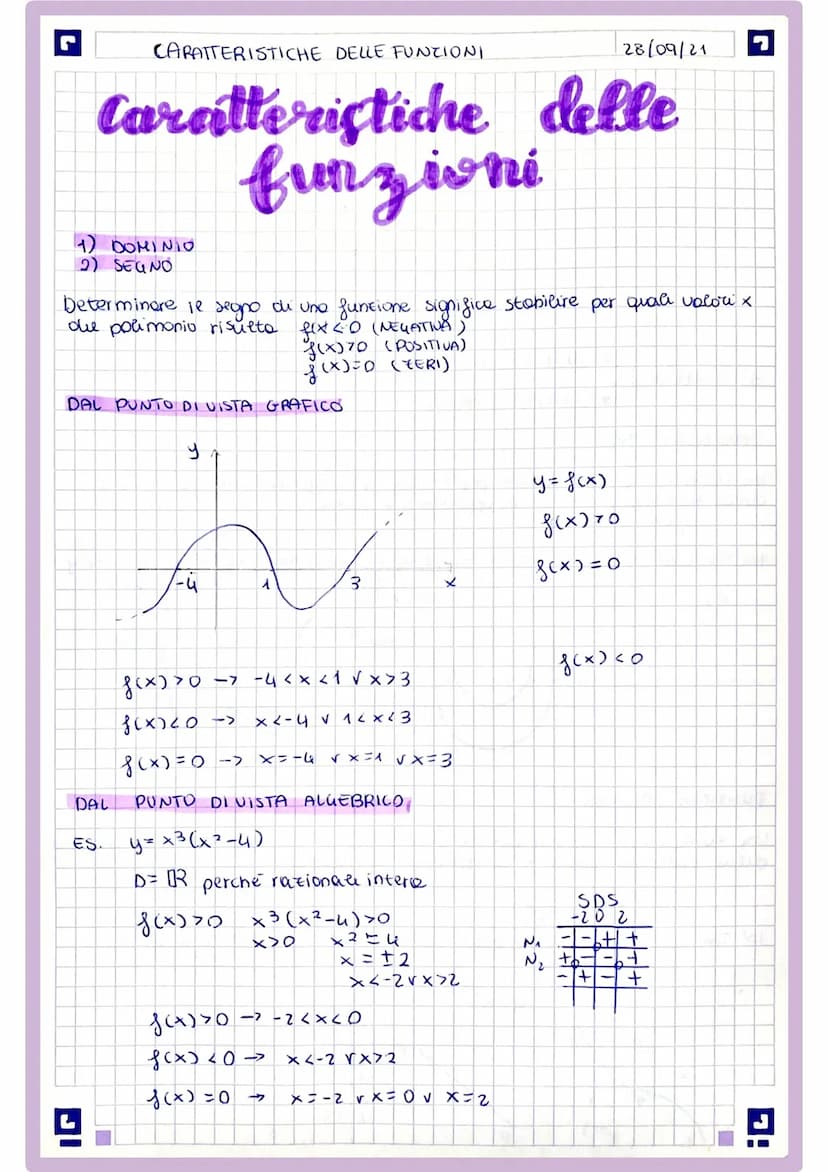 CARATTERISTICHE DELLE FUNZIONI 28/09/21
Caratteristiche delle
funzioni
1) DOMINIO
2) SEGNO
Determinare il segno di una funzione significa stabilire per quali valori x
due polimonio risulta f(x<0 (NEGATIVA)
f(x)>0 (POSITIVA)
f(x)=0 (ZERI)
DAL PUNTO DI VISTA GRAFICO
y
y=f(x)
f(x)>0
f(x)=0
-4 1 3 x
f(x)<0
f(x)>0 -> -4<x<1 ∨ x>3
f(x)<0 -> x<-4 ∨ 1<x<3
f(x)=0 -> x=-4 ∨ x=1 ∨ x=3
DAL PUNTO DI VISTA ALGEBRICO
ES. y=x³(x²-4)
D=ℝ perché razionale intera
f(x)>0 x³(x²-4)>0
x>0 x²=4
x=±2
x<-2∨x>2
SDS
-2 0 2
N1 - - + +
N2 + - - +
- + - +
f(x)>0 -> -2<x<0
f(x)<0 -> x<-2 ∨ x>2
f(x)=0 -> x=-2 ∨ x=0 ∨ x=2